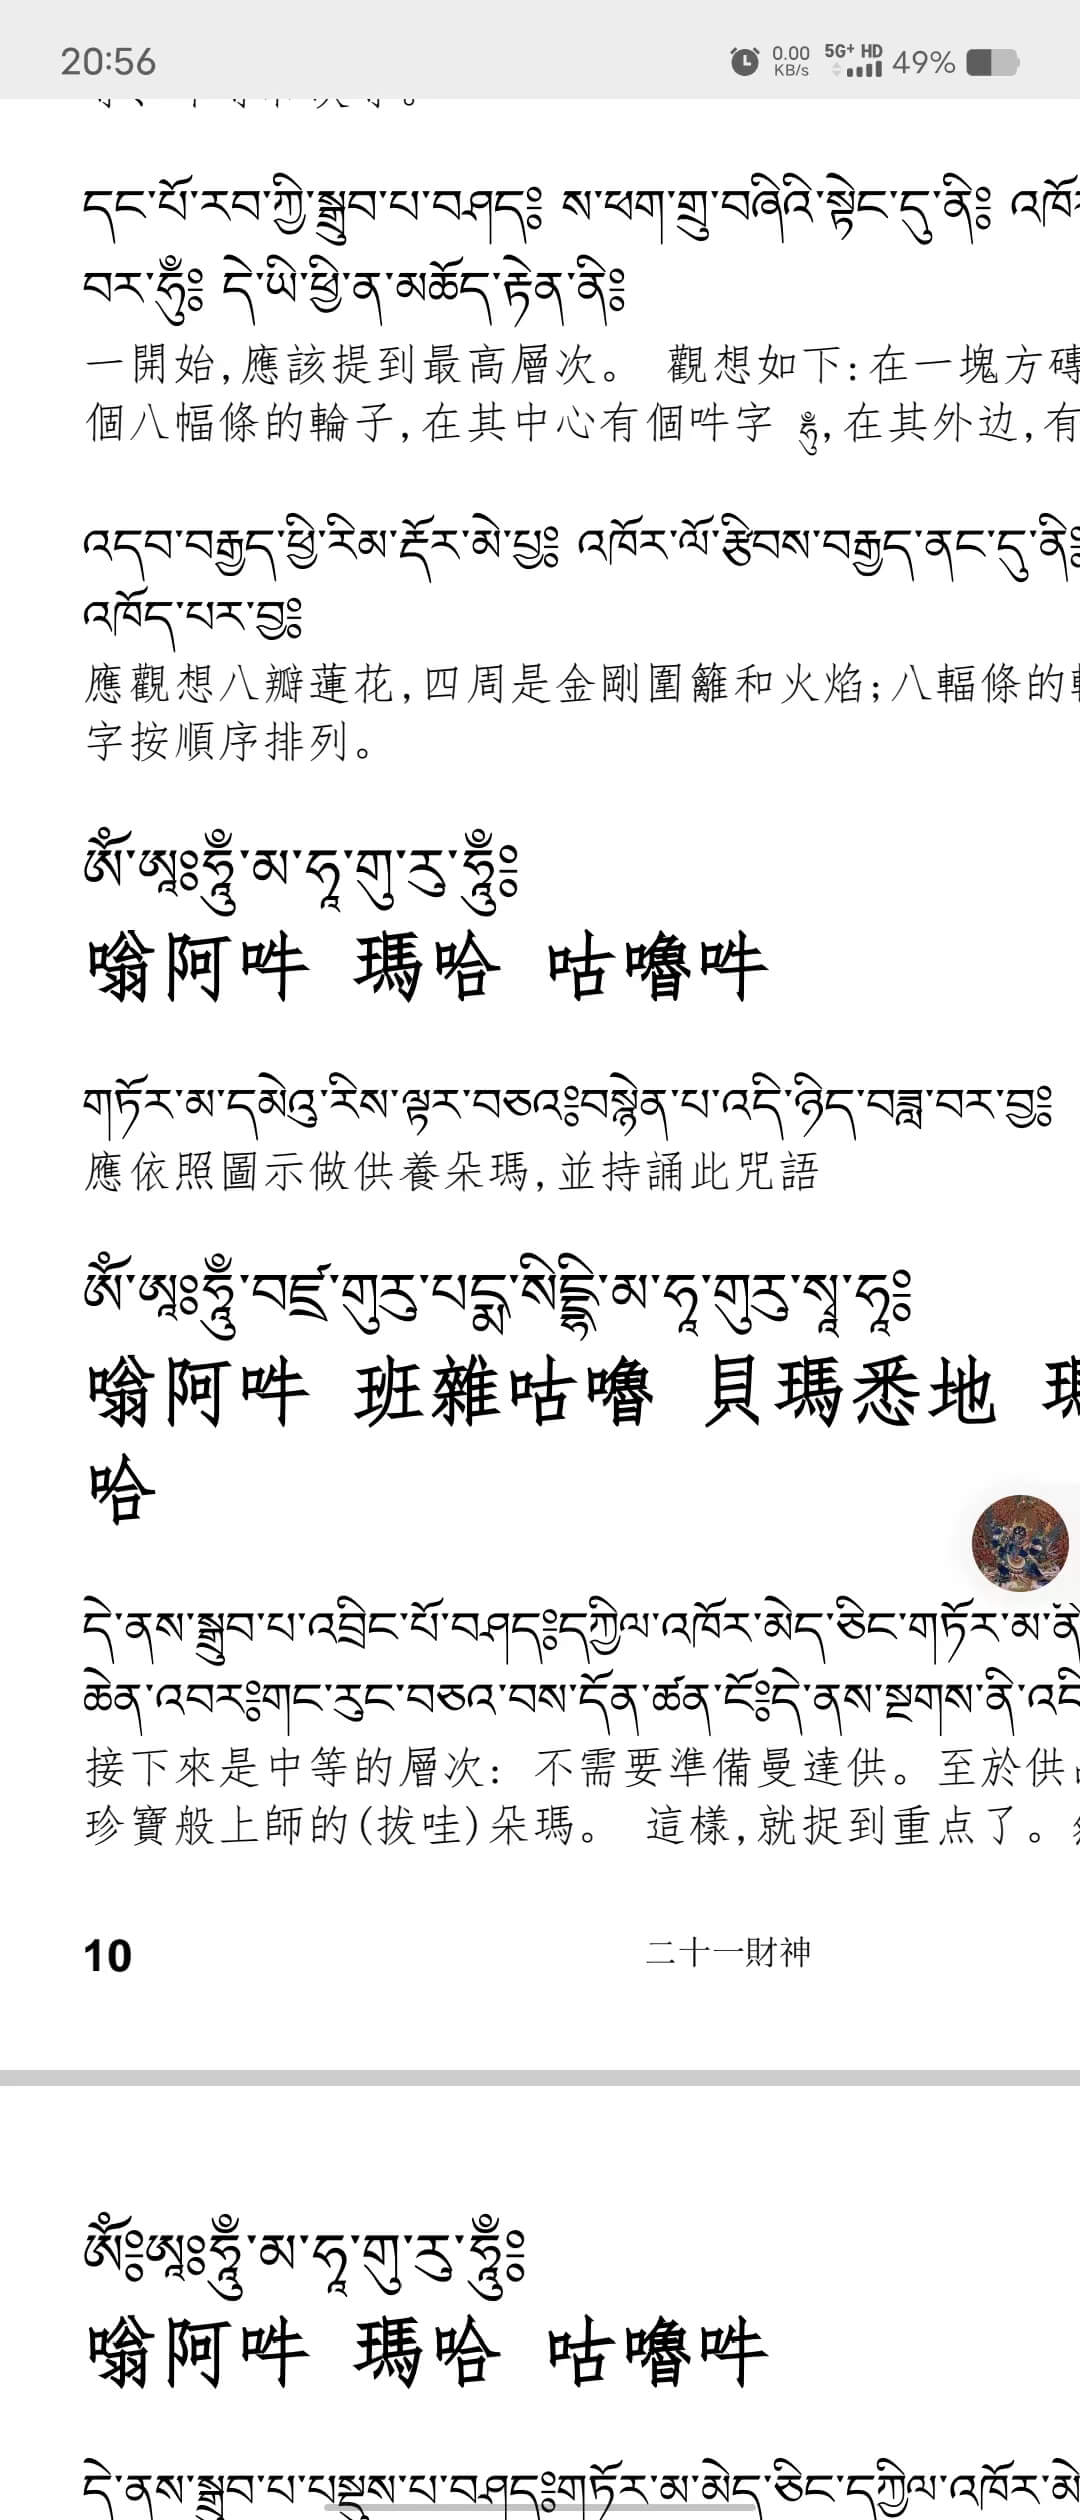 20:56
0.00 KB/s 5G+ HD 49%
དང་པོ་རབ་ཀྱི་སྒྲུབ་པ་བཤད༔ ས་ཕག་གྲུ་བཞིའི་སྟེང་དུ་ནི༔
བར་ཧཱུྃ༔ དེ་ཡི་ཕྱི་ན་མཆོད་རྟེན་ནི༔
一開始,應該提到最高層次。 觀想如下:在一塊方磚
個八幅條的輪子,在其中心有個吽字 ཧཱུྃ,在其外边,有
འདབ་བརྒྱད་ཕྱི་རིམ་རྡོར་མེ་བྱ༔ འཁོར་ལོ་རྩིབས་བརྒྱད་ནང་དུ་ནི༔
འཁོད་པར་བྱ༔
應觀想八瓣蓮花,四周是金剛圍籬和火焰;八輻條的
字按順序排列。
ཨོཾ་ཨཱཿཧཱུྃ་མ་ཧཱ་གུ་རུ་ཧཱུྃ༔
嗡阿吽 瑪哈 咕嚕吽
གཏོར་མ་དམེའུ་རིས་ལྟར་བཅའ༔བསྙེན་པ་འདི་ཉིད་བཟླ་བར་བྱ༔
應依照圖示做供養朵瑪,並持誦此咒語
ཨོཾ་ཨཱཿཧཱུྃ་བཛྲ་གུརུ་པདྨ་སིདྡྷི་མ་ཧཱ་གུརུ་སྭཱ་ཧཱ༔
嗡阿吽 班雜咕嚕 貝瑪悉地 瑪
哈
དེ་ནས་སྒྲུབ་པ་འབྲིང་པོ་བཤད༔དཀྱིལ་འཁོར་མེད་ཅིང་གཏོར་མ་ནི
ཆེན་འབར༔གང་རུང་བཅའ་བས་དོན་ཚན་ངོ༔དེ་ནས་སྔགས་ནི་འདི
接下來是中等的層次: 不需要準備曼達供。至於供
珍寶般上師的(拔哇)朵瑪。 這樣,就捉到重点了。
10 二十一財神
ཨོཾ༔ཨཱཿཧཱུྃ་མ་ཧཱ་གུ་རུ་ཧཱུྃ༔
嗡阿吽 瑪哈 咕嚕吽
དེ་ནས་སྒྲུབ་པ་བསྡུས་པ་བཤད༔གཏོར་མ་མེད་ཅིང་དཀྱིལ་འཁོར་མེ